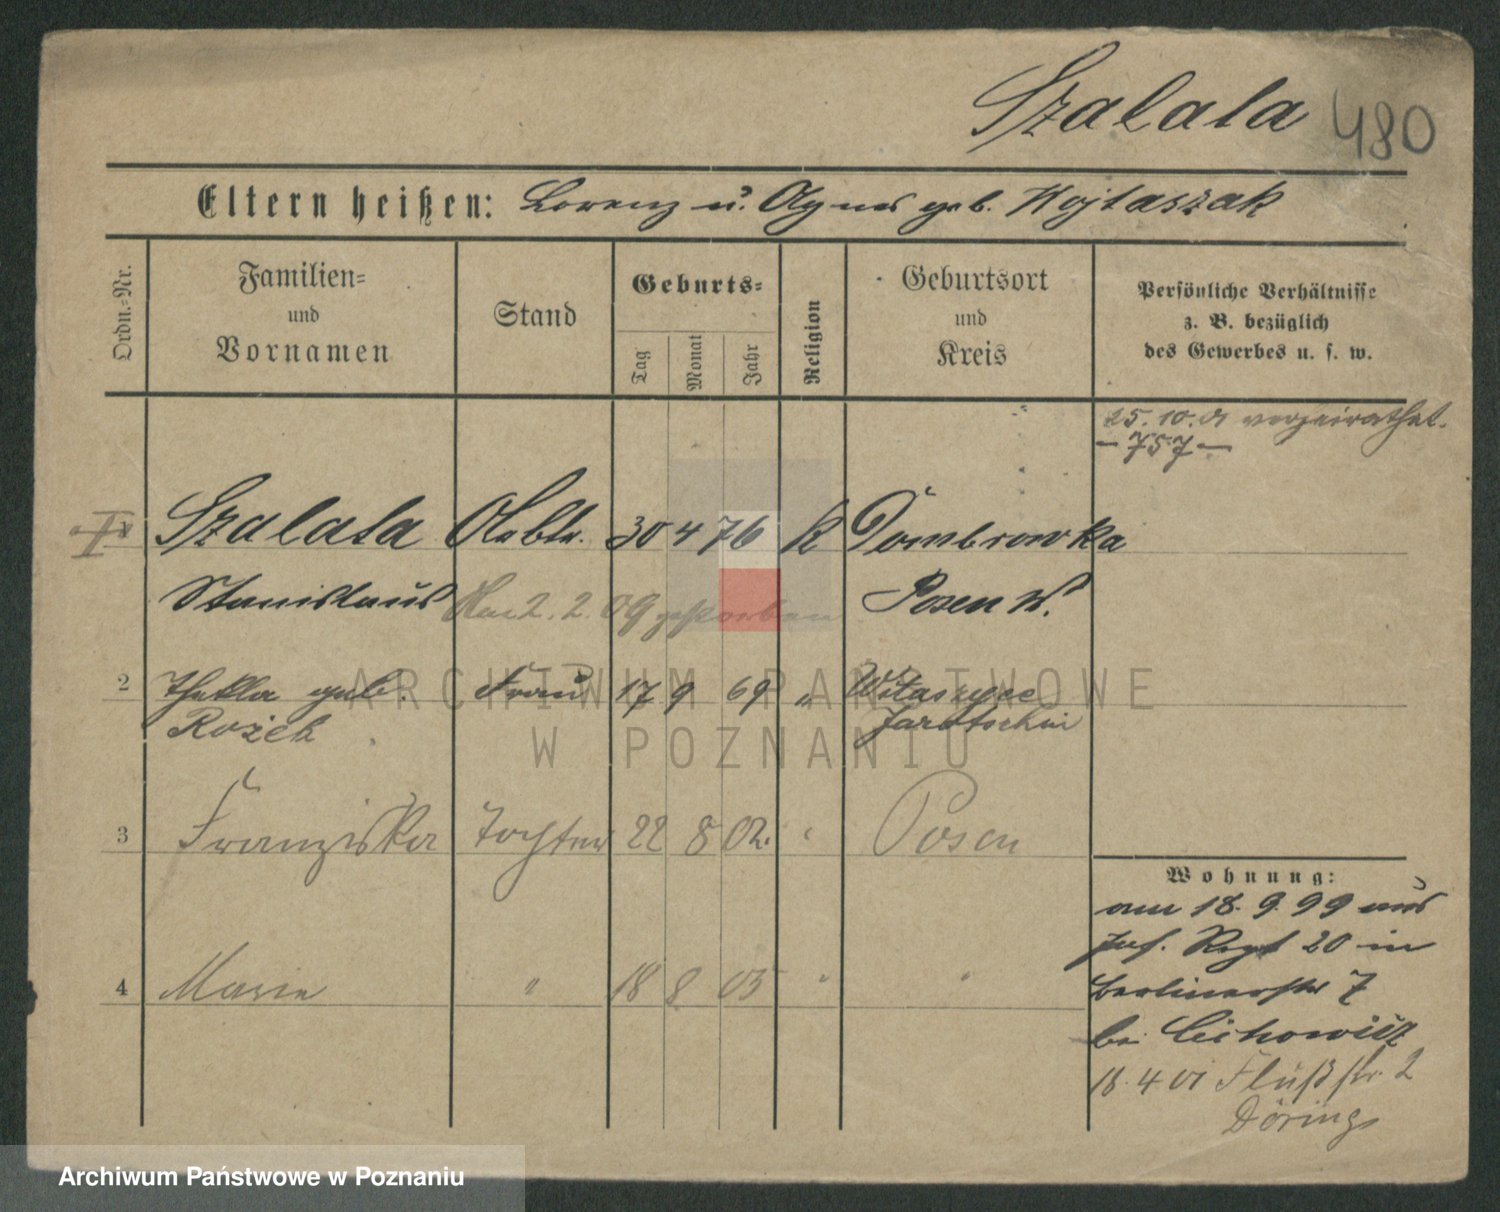 Szalata 480
Eltern heißen: Lorenz u. Agnes geb. Wojtaszak
Ordn.-Nr.
Familien-
und
Vornamen
Stand
Geburts-
Tag
Monat
Jahr
Religion
Geburtsort
und
Kreis
Persönliche Verhältnisse
z. B. bezüglich
des Gewerbes u. s. w.
25. 10. 01 verheirathet.
— 757 —
1 Szalata Arbtr. 30 4 76 K Dombrowka
Stanislaus 2. 2. 09 gestorben Posen W.
2 Thekla geb. Frau 17 9 69 " Witaszyce
Rożek Jarotschin
ARCHIWUM PAŃSTWOWE
W POZNANIU
3 Franziska Tochter 22 8 02. " Posen
4 Marie " 18 8 05 " "
Wohnung:
am 18. 9. 99 aus
Inf. Regt 20 in
Berlinerstr 7
bei Cichowicz
18. 4 01 Flußstr. 2
Döring
Archiwum Państwowe w Poznaniu